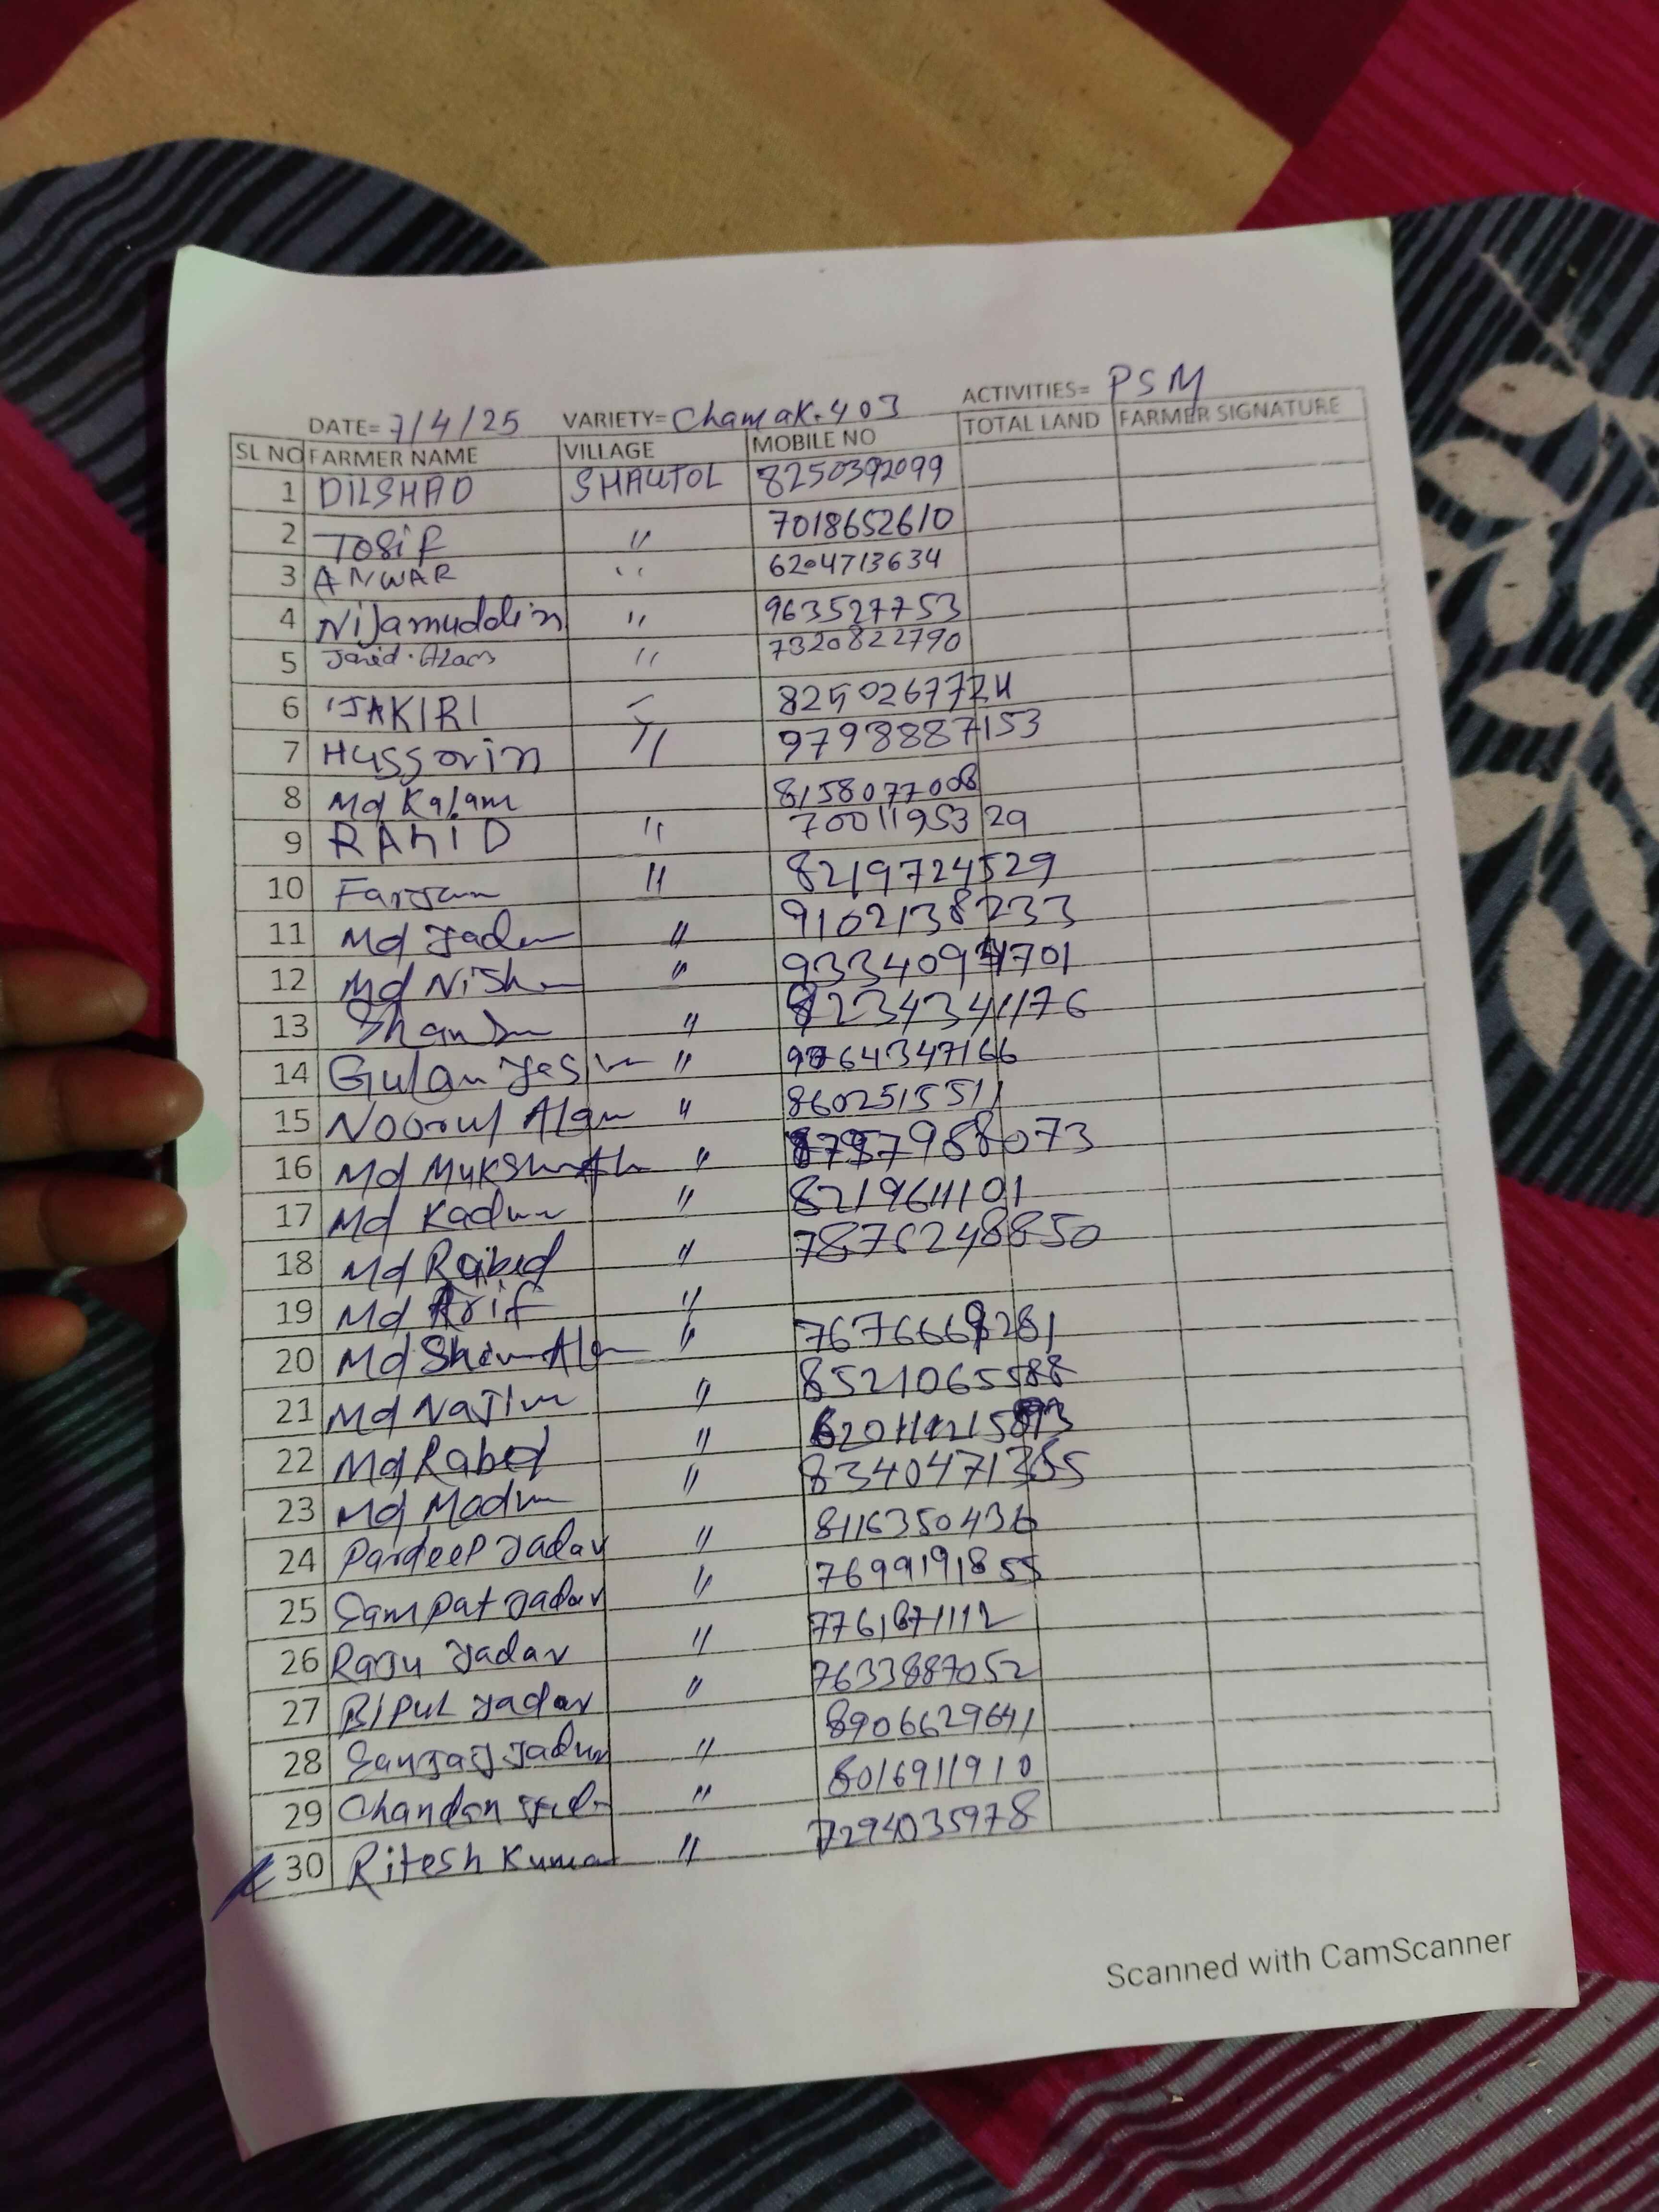 ACTIVITIES= PSM
DATE= 7/4/25 VARIETY= Chamak.403
SL NO FARMER NAME VILLAGE MOBILE NO TOTAL LAND FARMER SIGNATURE
1 DILSHAD SHAUTOL 8250392099
2 TOSIF " 7018652610
3 ANWAR " 6204713634
4 NiJamuddin " 963527753
5 Javed. Alam " 7320822790
6 JAKIRI 8250267724
7 Hussain " 9798887153
8 Md Kalam 8158077008
9 RAHID " 7001195329
10 " 8219724529
11 Md " 9102138233
12 Md " 9334094701
13 " 8234341176
14 Gulam " 64347166
15 Noorul Alam " 8602515511
16 Md "
17 Md " 8219611101
18 Md " 7876248850
19 Md Arif "
20 Md " 7676669281
21 Md Najim " 8521065588
22 Md Rabed "
23 Md " 8340471355
24 Pardeep Yadav " 8116350436
25 Sampat Yadav " 7699191855
26 Raju Yadav " 7761871112
27 BIPUL Yadav " 7633887052
28 Sanjay Yadav " 8906629641
29 Chandan " 8016911910
30 Ritesh Kumar " 7294035978
Scanned with CamScanner